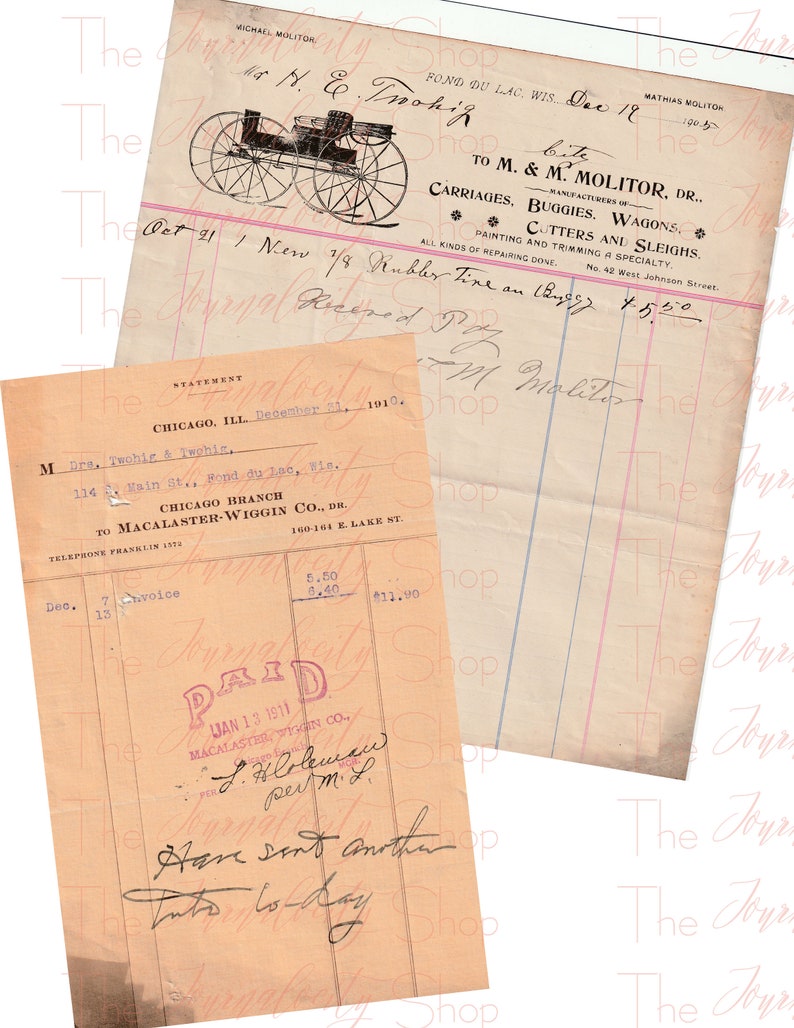 MICHAEL MOLITOR.
MATHIAS MOLITOR.
FOND DU LAC, WIS., Dec 19 1905
Mr H. E. Twohig
City
TO M. & M. MOLITOR, DR.,
MANUFACTURERS OF
CARRIAGES, BUGGIES, WAGONS,
CUTTERS AND SLEIGHS.
PAINTING AND TRIMMING A SPECIALTY.
ALL KINDS OF REPAIRING DONE.
No. 42 West Johnson Street.
Oct 21 1 New 7/8 Rubber Tire on Buggy $5.50
Received Pay
M Molitor
STATEMENT
CHICAGO, ILL. December 31, 1910.
M Drs. Twohig & Twohig,
114 S. Main St., Fond du Lac, Wis.
CHICAGO BRANCH
TO MACALASTER-WIGGIN CO., DR.
TELEPHONE FRANKLIN 1572
160-164 E. LAKE ST.
Dec. 7 Invoice 5.50
13 6.40 $11.90
PAID
JAN 13 1911
MACALASTER, WIGGIN CO.,
Chicago Branch
PER L. H Coleman MGR.
per M. L.
Have sent another
to-day
The Journalocity Shop